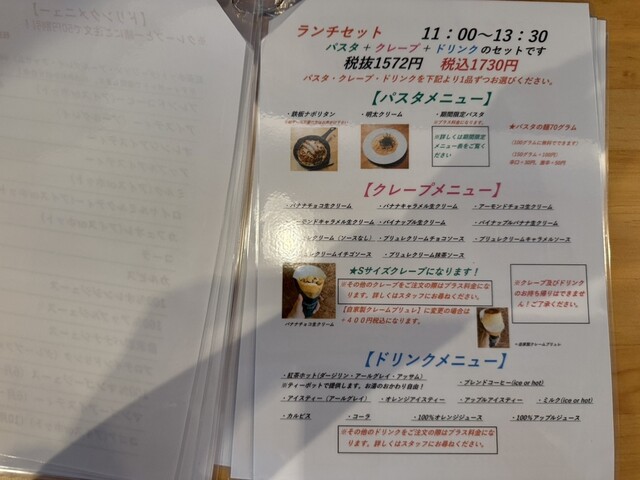 ランチセット 11：00～13：30
パスタ + クレープ + ドリンク のセットです
税抜1572円 税込1730円
パスタ・クレープ・ドリンクを下記より1品ずつお選びください。
【パスタメニュー】
・鉄板ナポリタン ・明太クリーム ・期間限定パスタ
※プラス料金になります。
※詳しくは期間限定
メニュー表をご覧く
ださい
★パスタの麺70グラム
(100グラムに無料でできます)
【クレープメニュー】
・バナナチョコ生クリーム ・バナナキャラメル生クリーム ・アーモンドチョコ生クリーム
ンドキャラメル生クリーム ・パイナップル生クリーム ・パイナップルバナナ生クリーム
ュレクリーム（ソースなし） ・ブリュレクリームチョコソース ・ブリュレクリームキャラメルソース
レクリームイチゴソース ・ブリュレクリーム抹茶ソース
★Sサイズクレープになります！
※その他のクレープをご注文の際はプラス料金にな
ります。詳しくはスタッフにお尋ねください。
【自家製クレームブリュレ】に変更の場合は
+４００円税込になります。
※クレープ及びドリンク
のお持ち帰りはできませ
ん！ご了承ください。
バナナチョコ生クリーム
・自家製クレームブリュレ
【ドリンクメニュー】
・紅茶ホット(ダージリン・アールグレイ・アッサム)
※ティーポットで提供します。お湯のおかわり自由！
・ブレンドコーヒー(ice or hot)
・アイスティー（アールグレイ） ・オレンジアイスティー ・アップルアイスティー ・ミルク(ice or hot)
・カルピス ・コーラ ・100%オレンジジュース ・100%アップルジュース
※その他のドリンクをご注文の際はプラス料金になりま
す。詳しくはスタッフにお尋ねください。